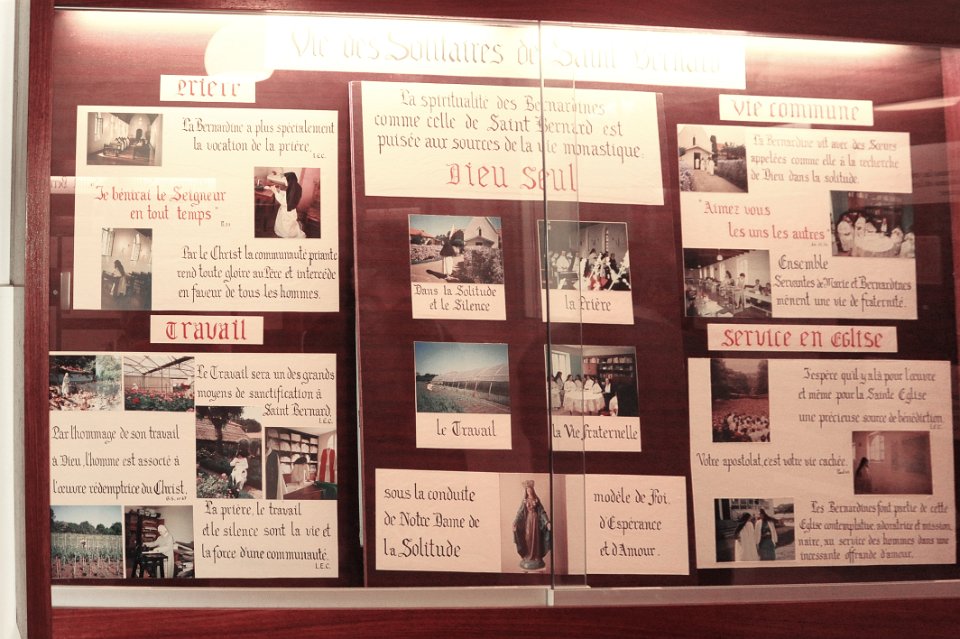 Vie des Solitaires de Saint Bernard
Prière
La Bernardine a plus spécialement
la vocation de la prière.
I.E.C.
"Je bénirai le Seigneur
en tout temps"
Par le Christ la communauté priante
rend toute gloire au Père et intercède
en faveur de tous les hommes.
Travail
Le Travail sera un des grands
moyens de sanctification à
Saint Bernard.
I.E.C.
Par l'hommage de son travail
à Dieu, l'homme est associé à
l'œuvre rédemptrice du Christ.
La prière, le travail
et le silence sont la vie et
la force d'une communauté.
I.E.C.
La spiritualité des Bernardines
comme celle de Saint Bernard est
puisée aux sources de la vie monastique:
Dieu seul
Dans la Solitude
et le Silence
la Prière
Le Travail
la Vie fraternelle
sous la conduite
de Notre Dame de
la Solitude
modèle de Foi,
d'Espérance
et d'Amour.
Vie commune
La Bernardine vit avec des Sœurs
appelées comme elle à la recherche
de Dieu dans la solitude.
"Aimez vous
les uns les autres"
Ensemble
Servantes de Marie et Bernardines
mènent une vie de fraternité.
Service en Eglise
J'espère qu'il y a là pour l'œuvre
et même pour la Sainte Eglise
une précieuse source de bénédiction.
I.E.C.
Votre apostolat, c'est votre vie cachée.
Les Bernardines font partie de cette
Eglise contemplative, adoratrice et mission_
naire, au service des hommes dans une
incessante offrande d'amour.